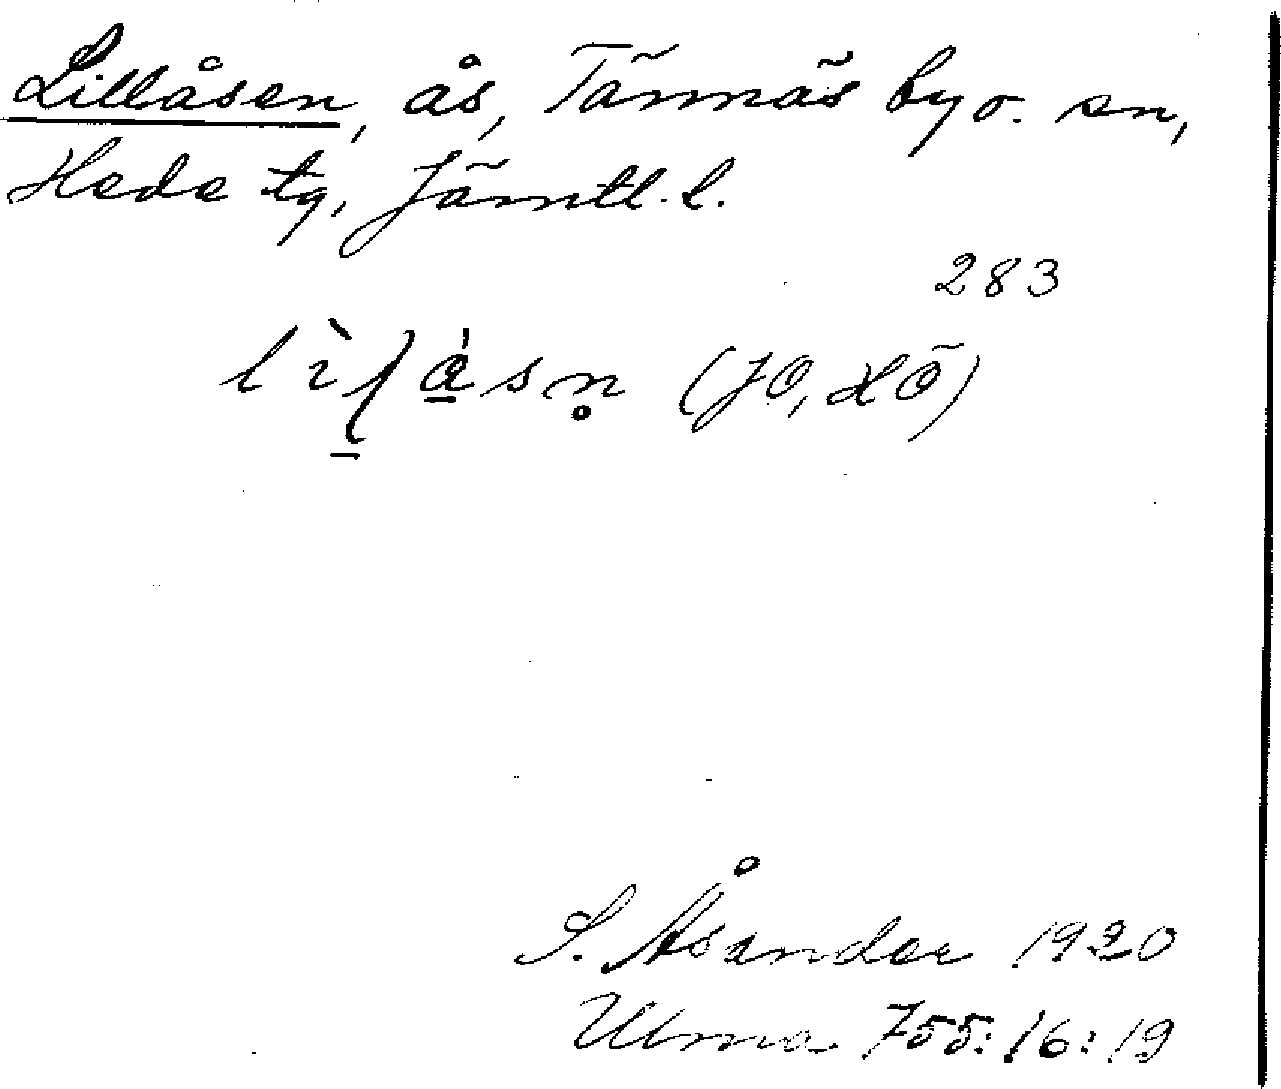 Lillåsen, ås, Tännäs by o. sn,
Hede tg, Jämtl. l.
283
(JO, LÖ)
S. Åsander 1920
Ulma 755:16:19